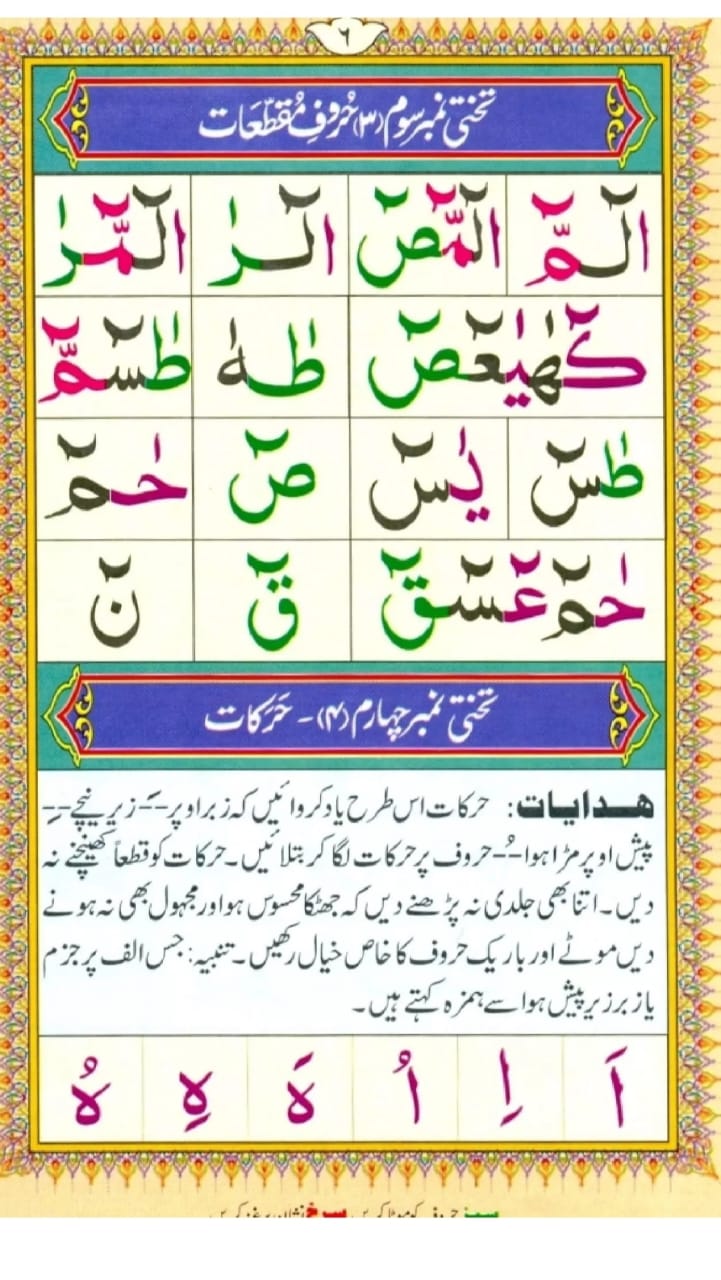 ٦
تختی نمبر سوم (۳) حُروفِ مُقَطَّعَات
الٓمّٓ الٓمّٓصٓ الٓرٰ الٓمّٓرٰ
كٓهٰيٰعٓصٓ طٰهٰ طٰسٓمّٓ
طٰسٓ يٰسٓ صٓ حٰمٓ
حٰمٓ عٓسٓقٓ قٓ نٓ
تختی نمبر چہارم (۴) - حَرَکات
هدایات: حرکات اس طرح یاد کروائیں کہ زبر اوپر -َ- زیر نیچے -ِ-
پیش اوپر مڑا ہوا -ُ- حروف پر حرکات لگا کر بتلائیں۔ حرکات کو قطعاً کھینچنے نہ
دیں۔ اتنا بھی جلدی نہ پڑھنے دیں کہ جھٹکا محسوس ہو اور مجہول بھی نہ ہونے
دیں موٹے اور باریک حروف کا خاص خیال رکھیں۔ تنبیہ: جس الف پر جزم
یا زبر زیر پیش ہو اسے ہمزہ کہتے ہیں۔
اَ اِ اُ هَ هِ هُ